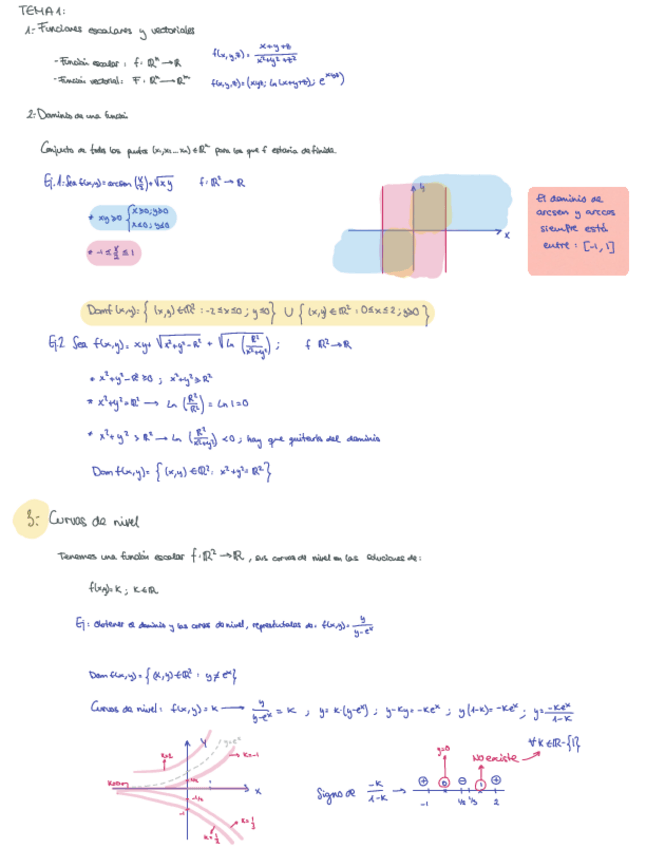 TEMA 1:
1.- Funciones escalares y vectoriales
- Función escalar : f: ℝⁿ → ℝ f(x,y,z) = (x+y+z)/(x²+y²+z²)
- Función vectorial: F: ℝⁿ → ℝᵐ f(x,y,z) = (xyz; ln(x+y+z); e^(xyz))
2.- Dominio de una función
Conjunto de todos los puntos (x₁,x₂...xₙ) ∈ ℝⁿ para los que f estaria definida.
Ej.1: Sea f(x,y) = arcsen (x/2) + √xy f: ℝ² → ℝ
* xy≥0 { x≥0; y≥0
x≤0; y≤0
* -1 ≤ x/2 ≤ 1
y
x
El dominio de
arcsen y arccos
siempre está
entre : [-1, 1]
Dom f(x,y) = { (x,y) ∈ ℝ² : -2≤x≤0 ; y≤0 } ∪ { (x,y) ∈ ℝ² : 0≤x≤2 ; y≥0 }
Ej.2 Sea f(x,y) = xy + √(x²+y²-R²) + √(ln (R²/(x²+y²))) ; f ℝ² → ℝ
* x²+y²-R² ≥0 ; x²+y² ≥ R²
* x²+y² = R² → ln (R²/R²) = ln 1 = 0
* x²+y² > R² → ln (R²/(x²+y²)) <0 ; hay que quitarlo del dominio
Dom f(x,y) = { (x,y) ∈ ℝ² : x²+y² = R² }
3.- Curvas de nivel
Tenemos una función escalar f: ℝ² → ℝ , sus curvas de nivel son las soluciones de :
f(x,y) = K ; K ∈ ℝ
Ej : Obtener el dominio y las curvas de nivel, f(x,y) = y/(y-eˣ)
Dom f(x,y) = { (x,y) ∈ ℝ² : y ≠ eˣ }
Curvas de nivel : f(x,y) = K → y/(y-eˣ) = K ; y = K·(y-eˣ) ; y-Ky = -Keˣ ; y(1-K) = -Keˣ ; y = -Keˣ/(1-K)
∀ K ∈ ℝ-{1}
y=0
No existe
K=2
Y
y=eˣ
K=-1
K=0
X
K=1/2
K=1/3
Signo de -K/(1-K) → + 0 - 1 +
-1 1/2 1/3 2